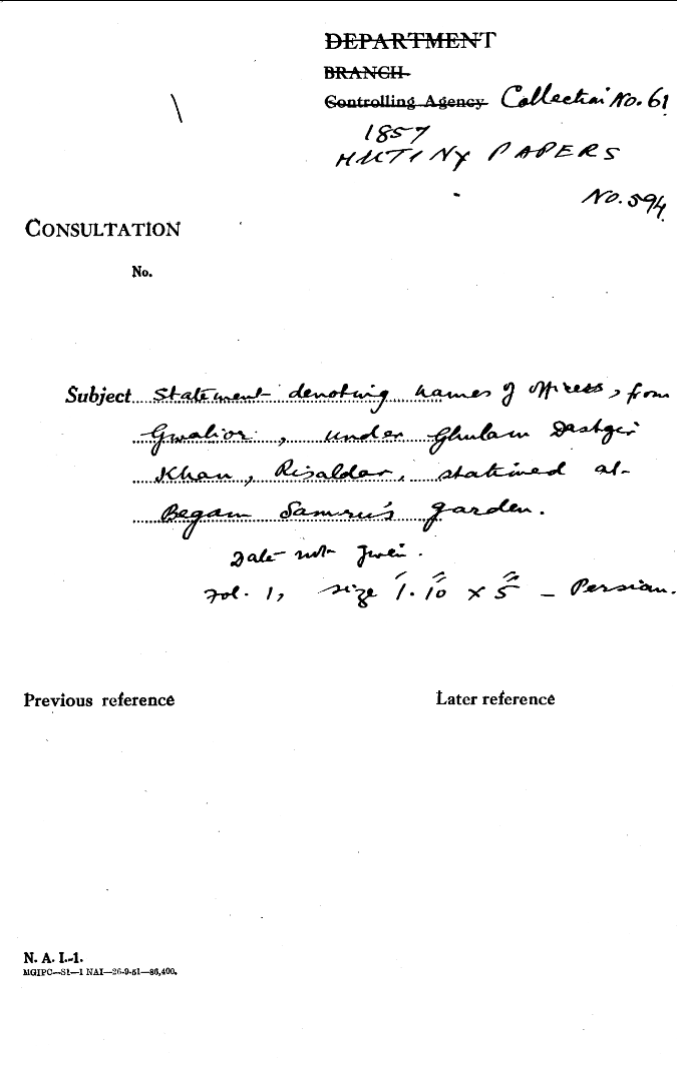 DEPARTMENT
BRANCH
Controlling Agency Collection No. 61
1857
MUTINY PAPERS
No. 594
CONSULTATION
No.
Subject Statement denoting names of officers, from
Gwalior, under Ghulam Dastgir
Khan, Risaldar, stationed at
Begam Samru's garden.
Date not given.
Fol. 1, size 1'.10" x 5" - Persian.
Previous reference
Later reference
N. A. I.-1.
MGIPC—S1—1 NAI—26-9-51—86,400.